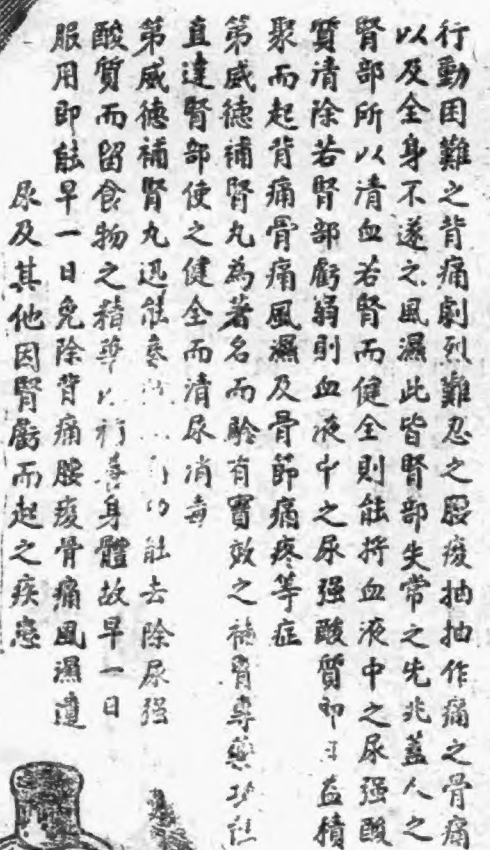 行動困難之背痛劇烈難忍之腰痠抽抽作痛之骨痛
以及全身不遂之風濕此皆腎部失常之先兆蓋人之
腎部所以清血若腎而健全則能將血液中之尿强酸
質清除若腎部虧弱則血液中之尿强酸質即日益積
聚而起背痛骨痛風濕及骨節痛疼等症
第威德補腎丸為著名而騐有實效之補腎專藥功能
直達腎部使之健全而清尿消毒
第威德補腎丸迅能奏 功能去除尿强
酸質而留食物之精華以補養身體故早一日
服用即能早一日免除背痛腰痠骨痛風濕遺
尿及其他因腎虧而起之疾患